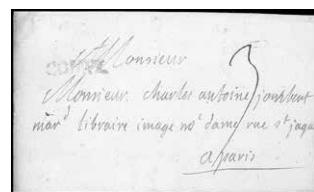 Monsieur
Monsieur charles antoine jombert
mard libraire image nore dame rue st jaque
a paris
3